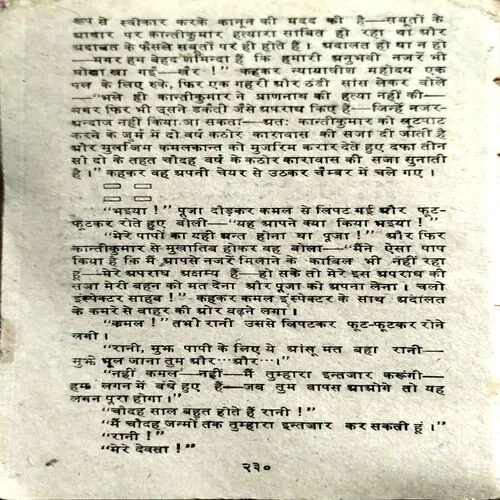 रूप से स्वीकार करके कानून की मदद की है—सबूतों के
आधार पर कान्तीकुमार हत्यारा साबित हो रहा था और
अदालत के फैसले सबूतों पर ही होते हैं। अदालत हो या न हो
—मगर हम बेहद शर्मिन्दा हैं कि हमारी अनुभवी नजरें भी
धोखा खा गईं—खैर !” कहकर न्यायाधीश महोदय एक
पल के लिए रुके, फिर एक गहरी और ठंडी सांस लेकर बोले
—“भले ही कान्तीकुमार ने प्राणनाथ की हत्या नहीं की—
मगर फिर भी उसने डकैती जैसे अपराध किए हैं—जिन्हें नजर-
अन्दाज नहीं किया जा सकता—अतः कान्तीकुमार को लूटपाट
करने के जुर्म में दो वर्ष कठोर कारावास की सजा दी जाती है
और मुलजिम कमलकान्त को मुजरिम करार देते हुए दफा तीन
सौ दो के तहत चौदह वर्ष के कठोर कारावास की सजा सुनाती
है।” कहकर वह अपनी चेयर से उठकर चैम्बर में चले गए।
“भइया !” पूजा दौड़कर कमल से लिपट गई और फूट-
फूटकर रोते हुए बोली—“यह आपने क्या किया भइया !”
“मेरे पापों का यही अन्त होना था पूजा !” और फिर
कान्तीकुमार से मुखातिब होकर वह बोला—“मैंने ऐसा पाप
किया है कि मैं आपसे नजरें मिलाने के काबिल भी नहीं रहा
हूं—मेरे अपराध अक्षम्य हैं—हो सके तो मेरे इस अपराध की
सजा मेरी बहन को मत देना और पूजा को अपना लेना। चलो
इंस्पेक्टर साहब !” कहकर कमल इंस्पेक्टर के साथ अदालत
के कमरे से बाहर की ओर बढ़ने लगा।
“कमल !” तभी रानी उससे लिपटकर फूट-फूटकर रोने
लगी।
“रानी, मुझ पापी के लिए ये आंसू मत बहा रानी—
मुझे भूल जाना तुम और···और···।”
“नहीं कमल—नहीं—मैं तुम्हारा इन्तजार करूंगी—
हम लगन में बंधे हुए हैं—जब तुम वापस आओगे तो यह
लगन पूरा होगा।”
“चौदह साल बहुत होते हैं रानी !”
“मैं चौदह जन्मों तक तुम्हारा इन्तजार कर सकती हूं।”
“रानी !”
“मेरे देवता !”
२३०